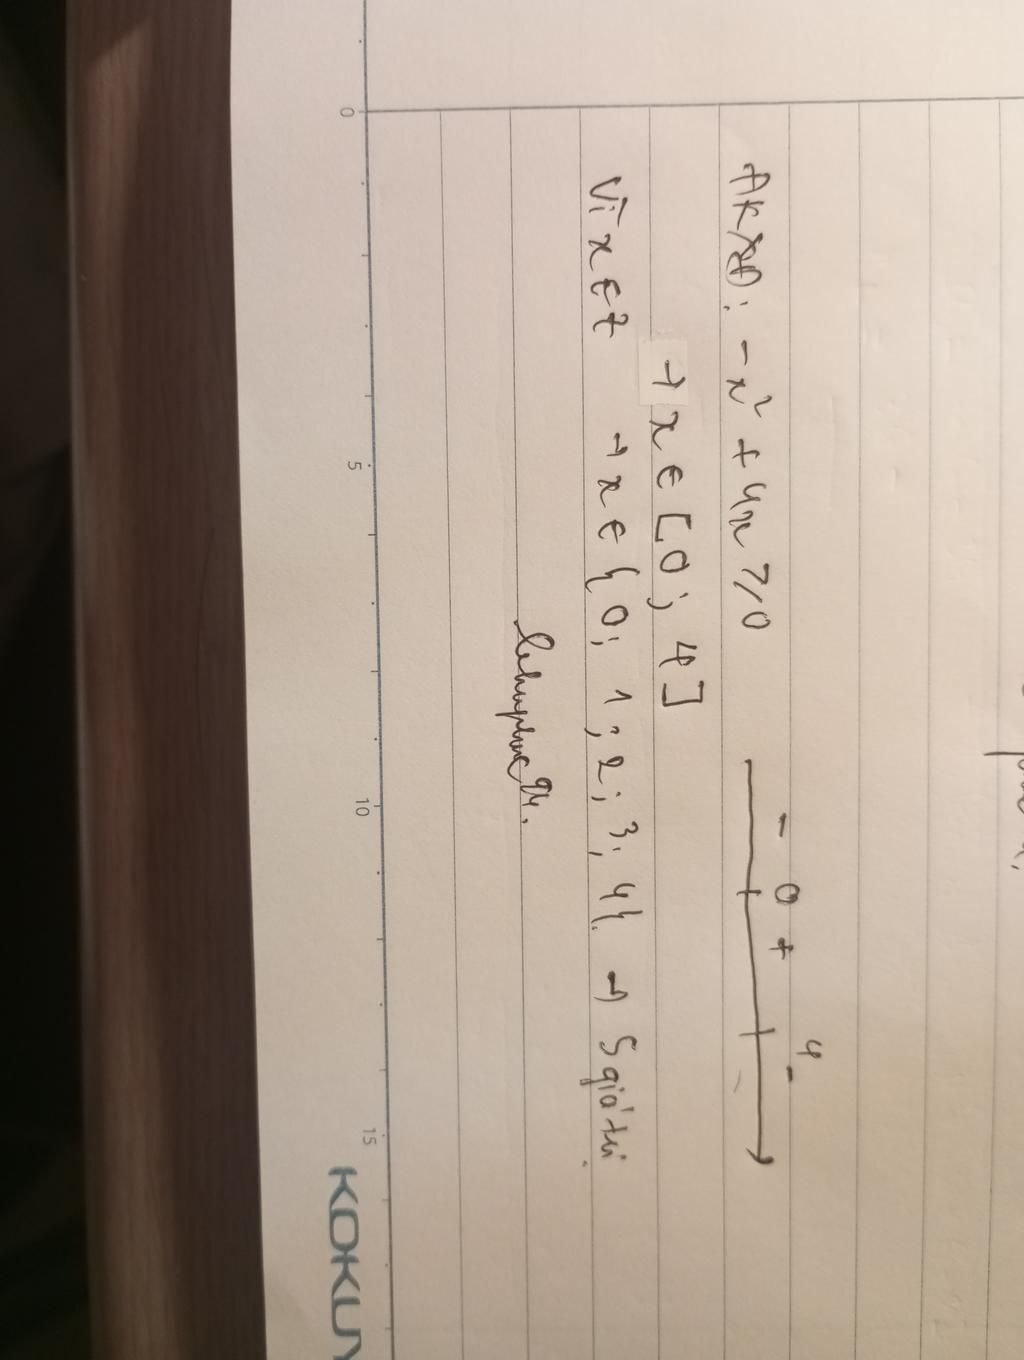 ĐKXĐ: -x² + 4x ⩾ 0
- 0 + 4 -
→ x ∈ [0; 4]
Vì x ∈ Z → x ∈ {0; 1; 2; 3; 4}. → 5 giá trị
0 5 10 15
KOKUY